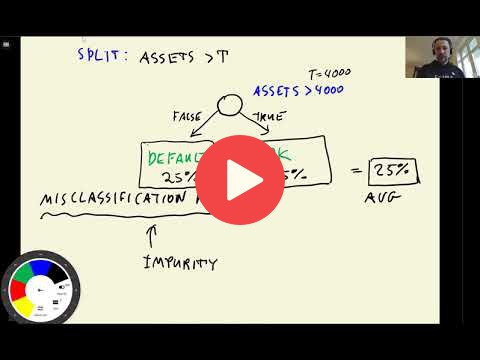 SPLIT: ASSETS > T
T = 4000
ASSETS > 4000
FALSE TRUE
DEFAULT
25% %
= 25%
MISCLASSIFICATION
AVG
IMPURITY